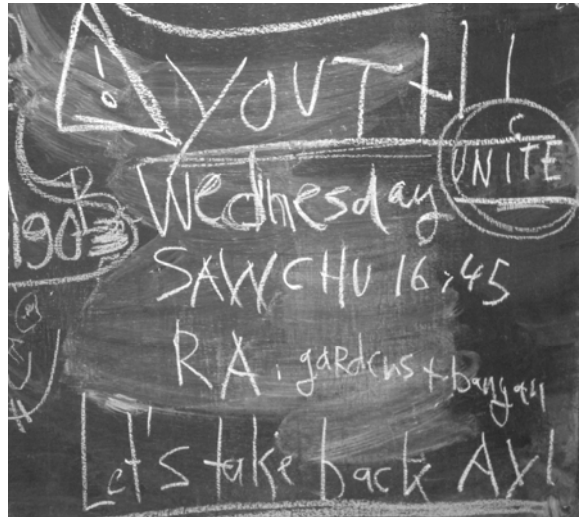 YOUTH!
UNITE
Wednesday
SAWCHU 16:45
RA. gardens + bangan
Let's take back AY!